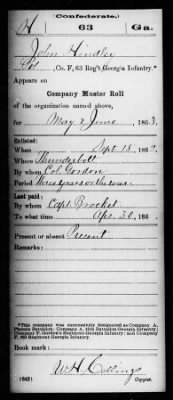 (Confederate.)
H 63 Ga.
John Hindley
Col, Co. F, 63 Reg't Georgia Infantry.*
Appears on
Company Muster Roll
of the organization named above,
for May & June, 1863.
Enlisted:
When Sept. 18, 186
Where Thunderbolt
By whom Col. Gordon
Period Three years or the war
Last paid:
By whom Capt. Brocket
To what time Apr. 30, 186
Present or absent Present
Remarks:
*This company was successively designated as Company A,
Phoenix Battalion; Company A, 13th Battalion Georgia Infantry;
Company F, Gordon's Regiment Georgia Infantry; and Company
F, 63d Regiment Georgia Infantry.
Book mark:
W.H. Collings
(642) Copyist.